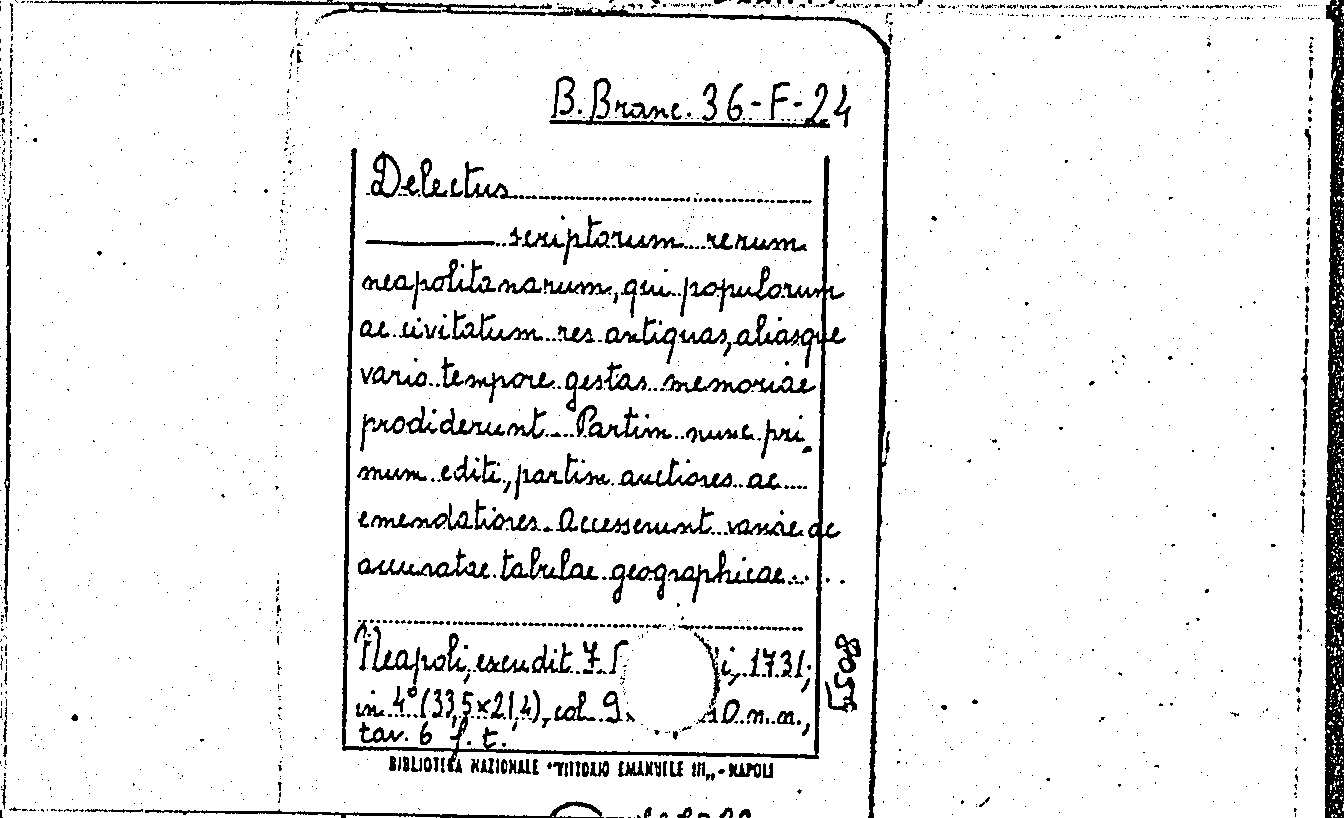 B. Branc. 36-F-24
Delectus
scriptorum rerum
neapolitanarum, qui populorum
ac civitatum res antiquas, aliasque
vario tempore gestas memoriae
prodiderunt. Partim nunc pri-
mum editi, partim auctiores ac
emendatiores. Accesserunt variae ac
accuratae tabulae geographicae...
Neapoli, excudit i, 1731;
in 4° (33,5x21,4), col. 0 n.n.,
tav. 6 f.t.
BIBLIOTECA NAZIONALE "VITTORIO EMANUELE III„ - NAPOLI